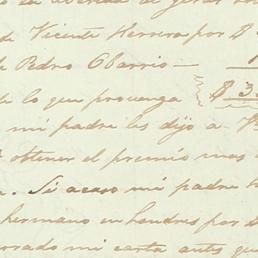 de Vicente Herrera por $
de Pedro Obarrio —
de lo que provenga $ 3
mi padre les dijo a
obtener el premio mas
Si acaso mi padre
hermano en Londres por
mi carta antes que